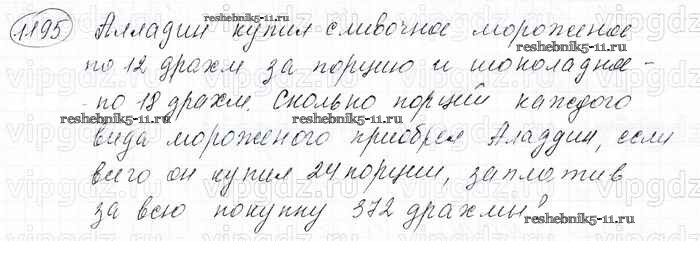 1195 Алладин купил сливочное мороженое
по 12 драхм за порцию и шоколадное -
- по 18 драхм. Сколько порций каждого
вида мороженого приобрел Аладдин, если
всего он купил 24 порции, заплатив
за всю покупку 372 драхмы?
reshebnik5-11.ru
reshebnik5-11.ru
reshebnik5-11.ru
reshebnik5-11.ru
reshebnik5-11.ru